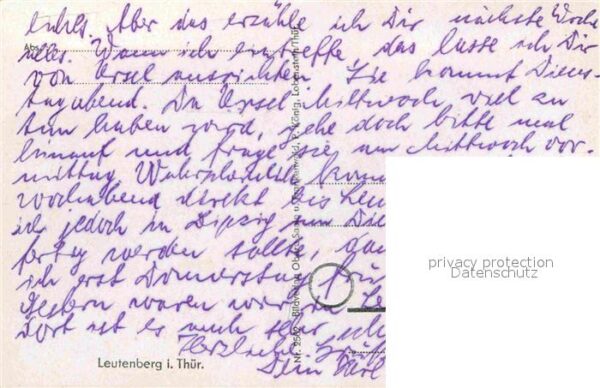 Aber das erzähle ich Dir nächste Woche
alles. Wann ich eintreffe, das lasse ich Dir
von Ursel ausrichten. Sie kommt Diens-
tagabend. Da Ursel Mittwoch viel zu
tun haben wird, gehe doch bitte mal
hinauf und frage sie am Mittwoch vor-
mittag. Wahrscheinlich
direkt bis
ich jedoch in Leipzig am
fertig werden sollte,
ich erst Donnerstag
Gestern waren wir in
Dort ist es auch sehr
Herzliche
Dein
Abs.
Nr. 2582 Bildverlag Obere Saale u. König, Lobenstein Thür.
Leutenberg i. Thür.
privacy protection
Datenschutz